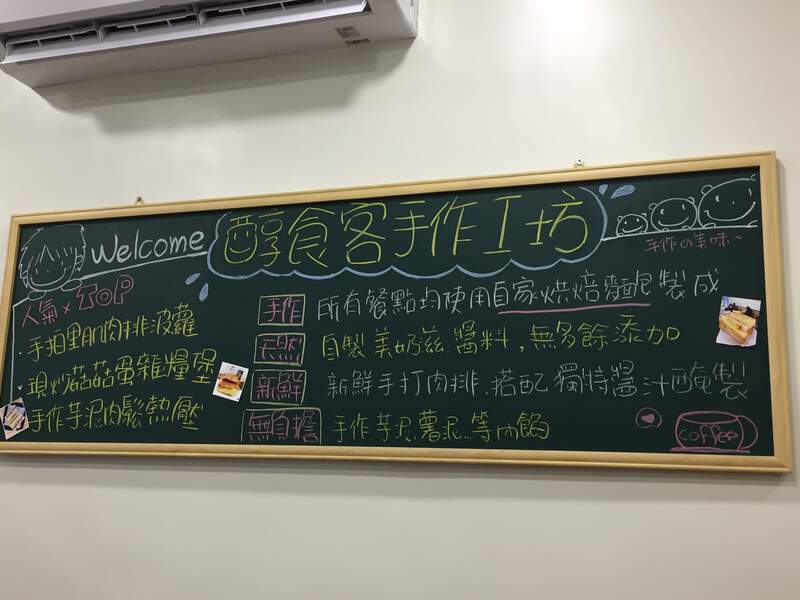 Welcome
醇食客手作工坊
手作の美味~
人氣×TOP
·手拍里肌肉排菠蘿
·現炒菇菇蛋雜糧堡
·手作芋泥肉鬆熱壓
手作 所有餐點均使用自家烘焙麵包製成
天然 自製美奶滋醬料,無多餘添加
新鮮 新鮮手打肉排.搭配獨特醬汁醃製
無負擔 手作芋泥.薯泥..等內餡
coffee